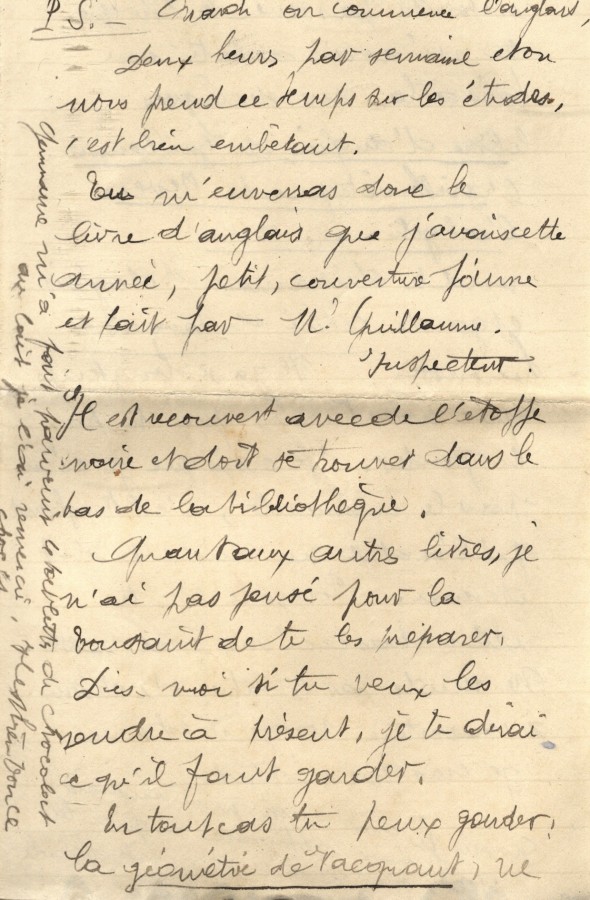 P.S. - Mardi on commence l'anglais,
Deux heures par semaine et on
nous prend ce temps sur les études,
c'est bien embêtant.
Tu m'enverras donc le
livre d'anglais que j'avais cette
année, petit, couverture jaune
et fait par Mr Guillaume.
Inspecteur.
Il est recouvert avec de l'étoffe
noire et doit se trouver dans le
bas de la bibliothèque.
Quant aux autres livres, je
n'ai pas pensé pour la
Toussaint de te les préparer.
Dis-moi si tu veux les
vendre à présent, je te dirai
ce qu'il faut garder.
En tout cas tu peux garder,
la géométrie de Vacquant, ne
Germaine m'a fait parvenir la tablette de chocolat
au lait je l'ai remercié,